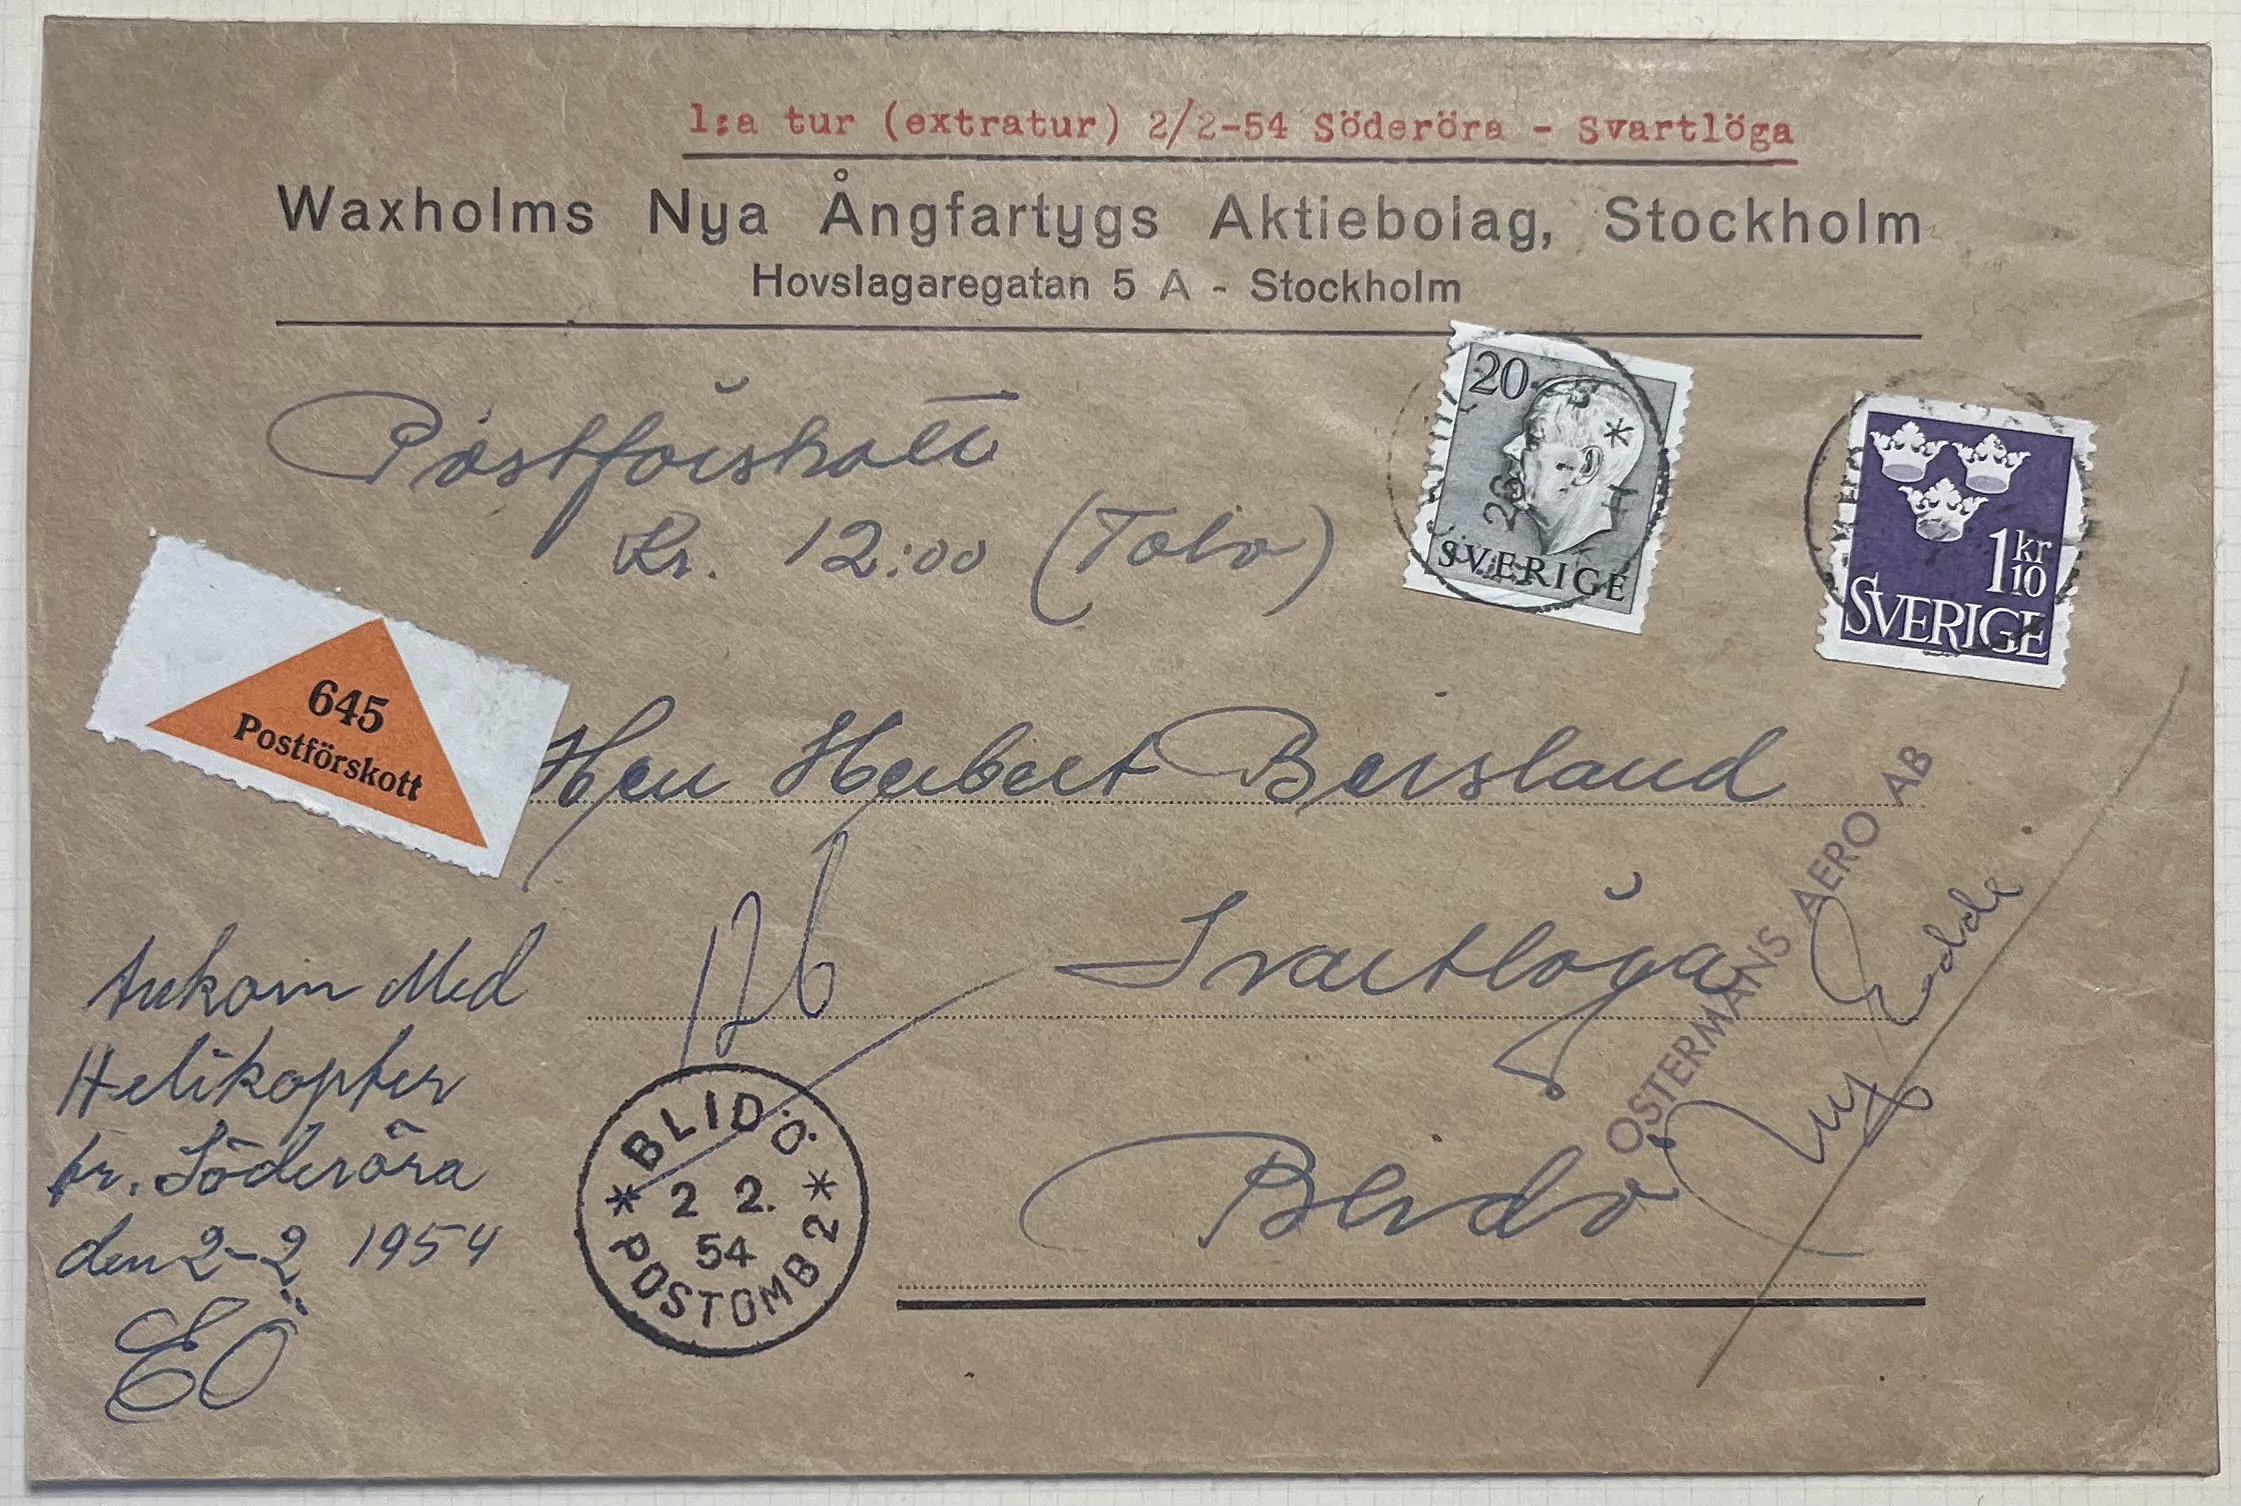 1:a tur (extratur) 2/2-54 Söderöra - Svartlöga
Waxholms Nya Ångfartygs Aktiebolag, Stockholm
Hovslagaregatan 5 A - Stockholm
Postförskott
Kr. 12:00 (Tolv)
20
SVERIGE
1 kr 10
SVERIGE
645
Postförskott
Herr Herbert
Svartlöga
Blidö
126
ÖSTERMANS AERO AB
Ankom Med
Helikopter
fr. Söderöra
den 2-2 1954
EÖ
BLIDÖ
* 2 2. *
54
POSTOMB 2